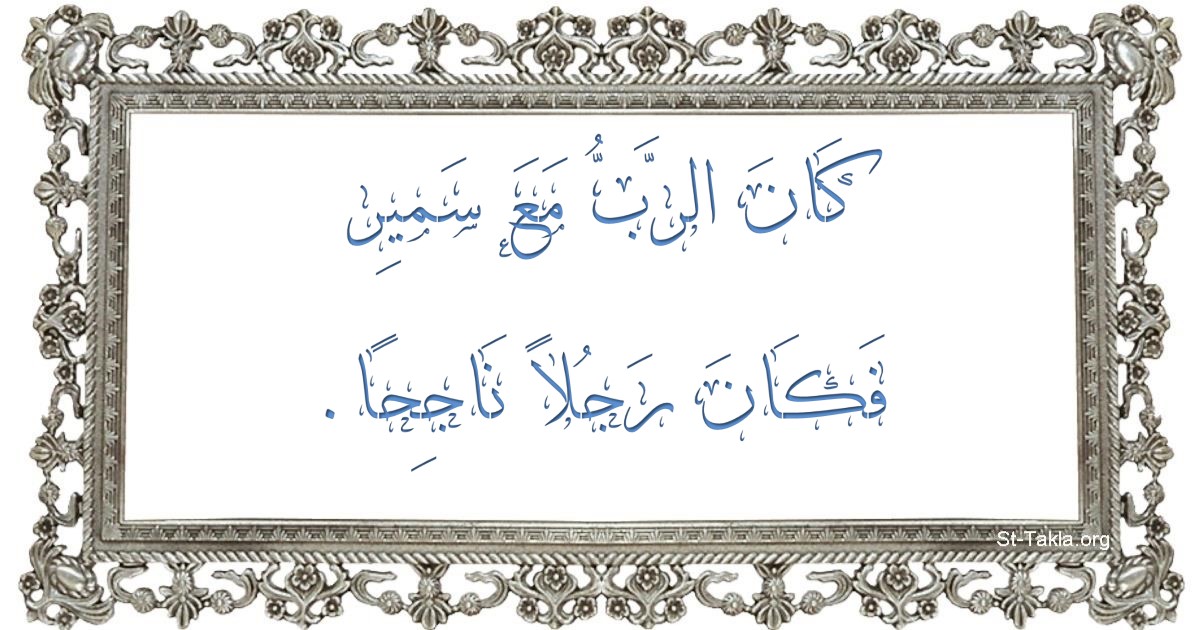 كَانَ الرَّبُّ مَعَ سَمِيرِ
فَكَانَ رَجُلاً نَاجِحًا .
St-Takla.org